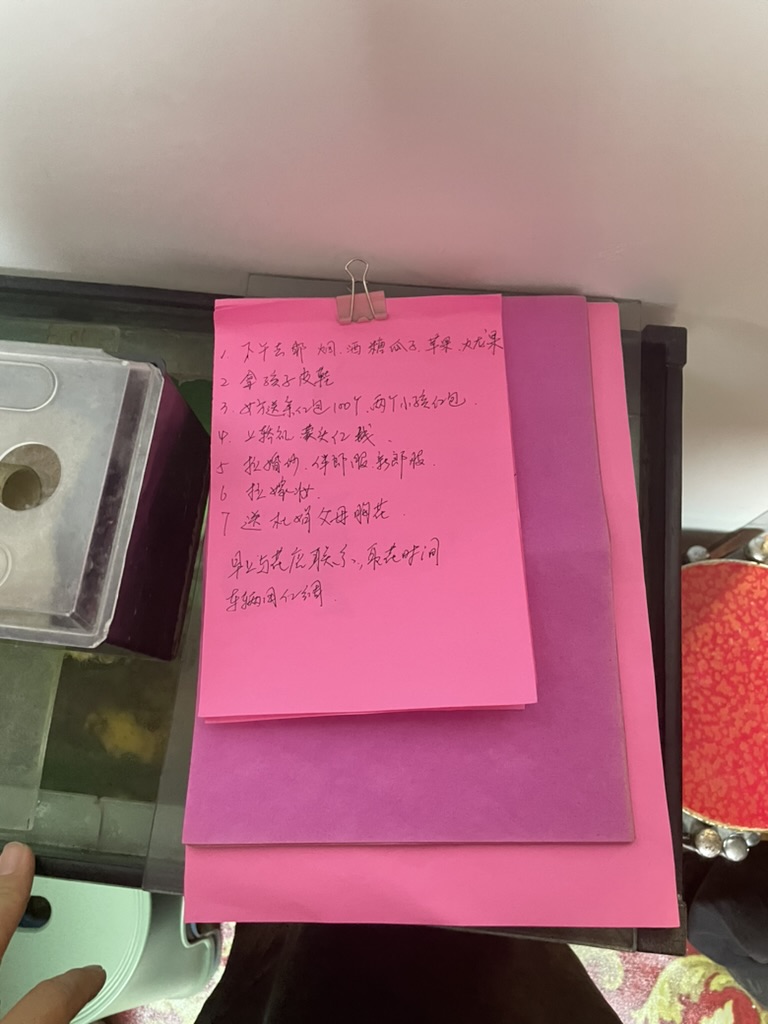 1. 下午去郭 烟.酒.糖.瓜子.苹果.火龙果
2 拿孩子皮鞋
3. 女方送亲红包100个.两个小孩红包.
4. 上轿礼 红钱.
5 拉婚纱.伴郎服.新郎服.
6 拉嫁妆.
7 送 父母胸花.
早上与花店联系,取花时间
车辆用红绸.